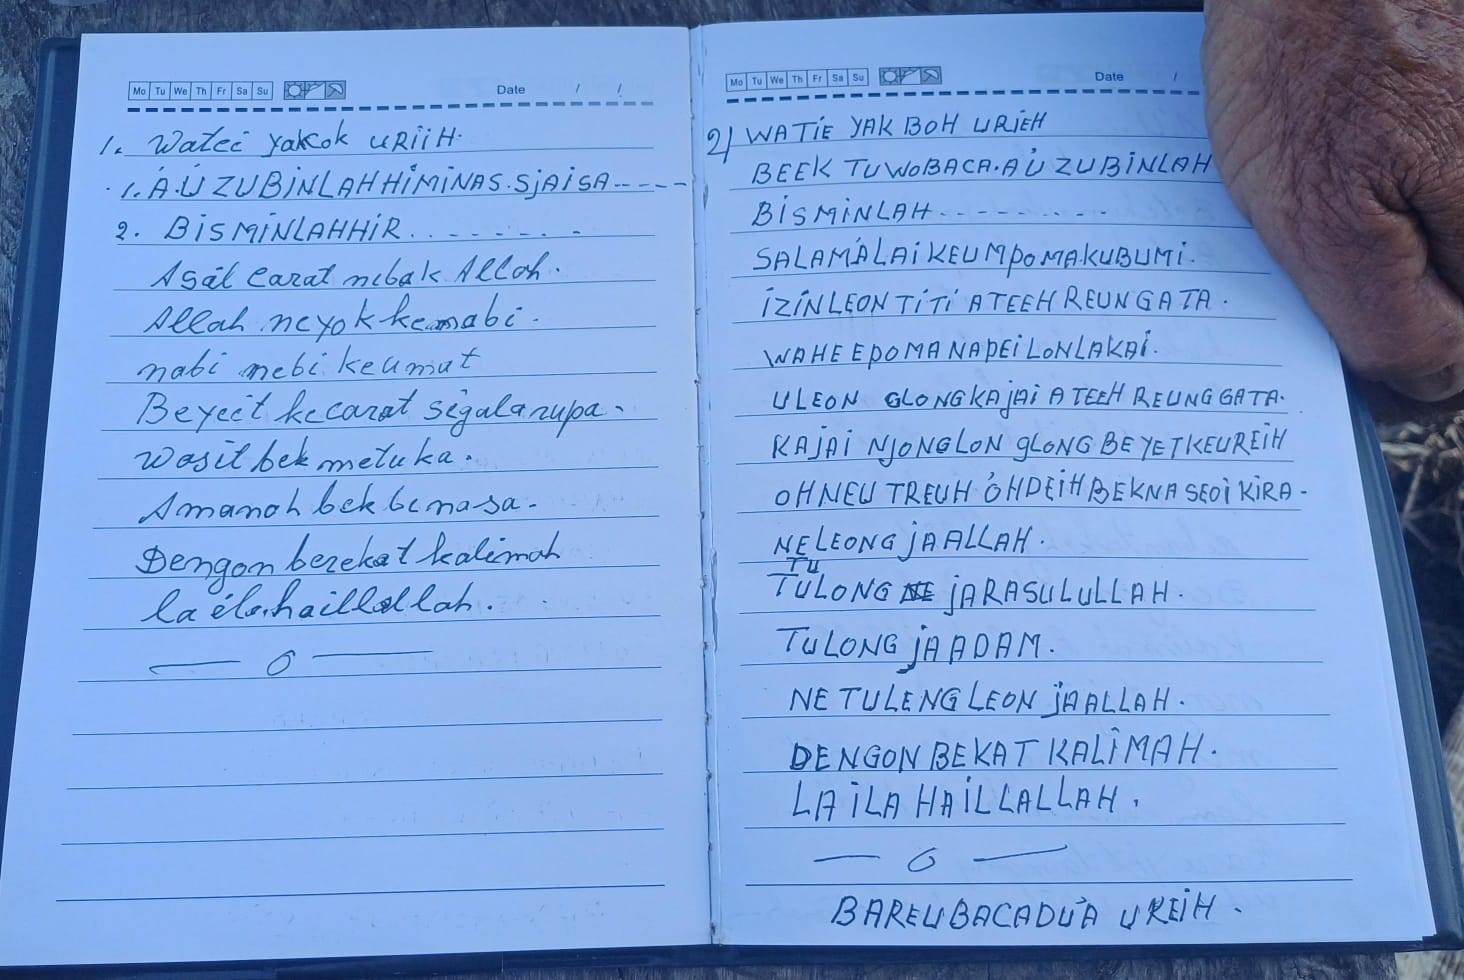 Mo Tu We Th Fr Sa Su
Date / /
1. Watei yakcok URIIH.
1. A.U ZUBINLAHHIMINAS.SJAISA-----
2. BISMINLAHHIR.........
Asal carat nibak Allah.
Allah neyok kenabi.
nabi nebi keumat
Beyeet kecarat segala rupa.
Wasit bek metuka.
Amanah bek binasa.
Dengon berekat kalimah
la élahaillallah.
— o —
Mo Tu We Th Fr Sa Su
Date /
2) WATIE YAK BOH URIEH
BEEK TUWOBACA.AÚ ZUBINLAH
BISMINLAH.........
SALAM'ALAIKEUMPOMAKUBUMI.
IZINLEON TITI ATEEH REUNGATA.
WAHE EPOMA NAPEILONLAKAI.
ULEON GLONGKAJAI ATEEH REUNGGATA.
KAJAI NJONGLON GLONG BEYETKEUREIH
OHNEU TREUH ÓHDEIH BEKNA SEOIKIRA-
NELEONG JAALLAH.
TU
TULONG JARASULULLAH.
TULONG JAADAM.
NE TULENG LEON JAALLAH.
DENGON BEKAT KALIMAH.
LA ILA HAILLALLAH.
— o —
BAREUBACADU'A UREIH.